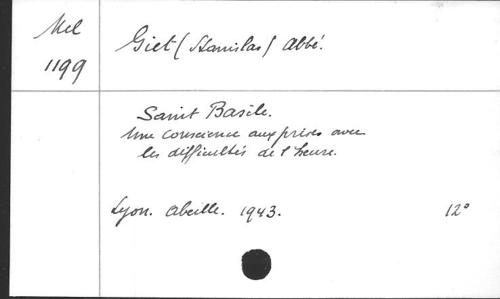 Mel
1199
Giet (Stanislas) Abbé.
Saint Basile.
Une conscience aux prises avec
les difficultés de l'heure.
Lyon. Abeille. 1943.
12°